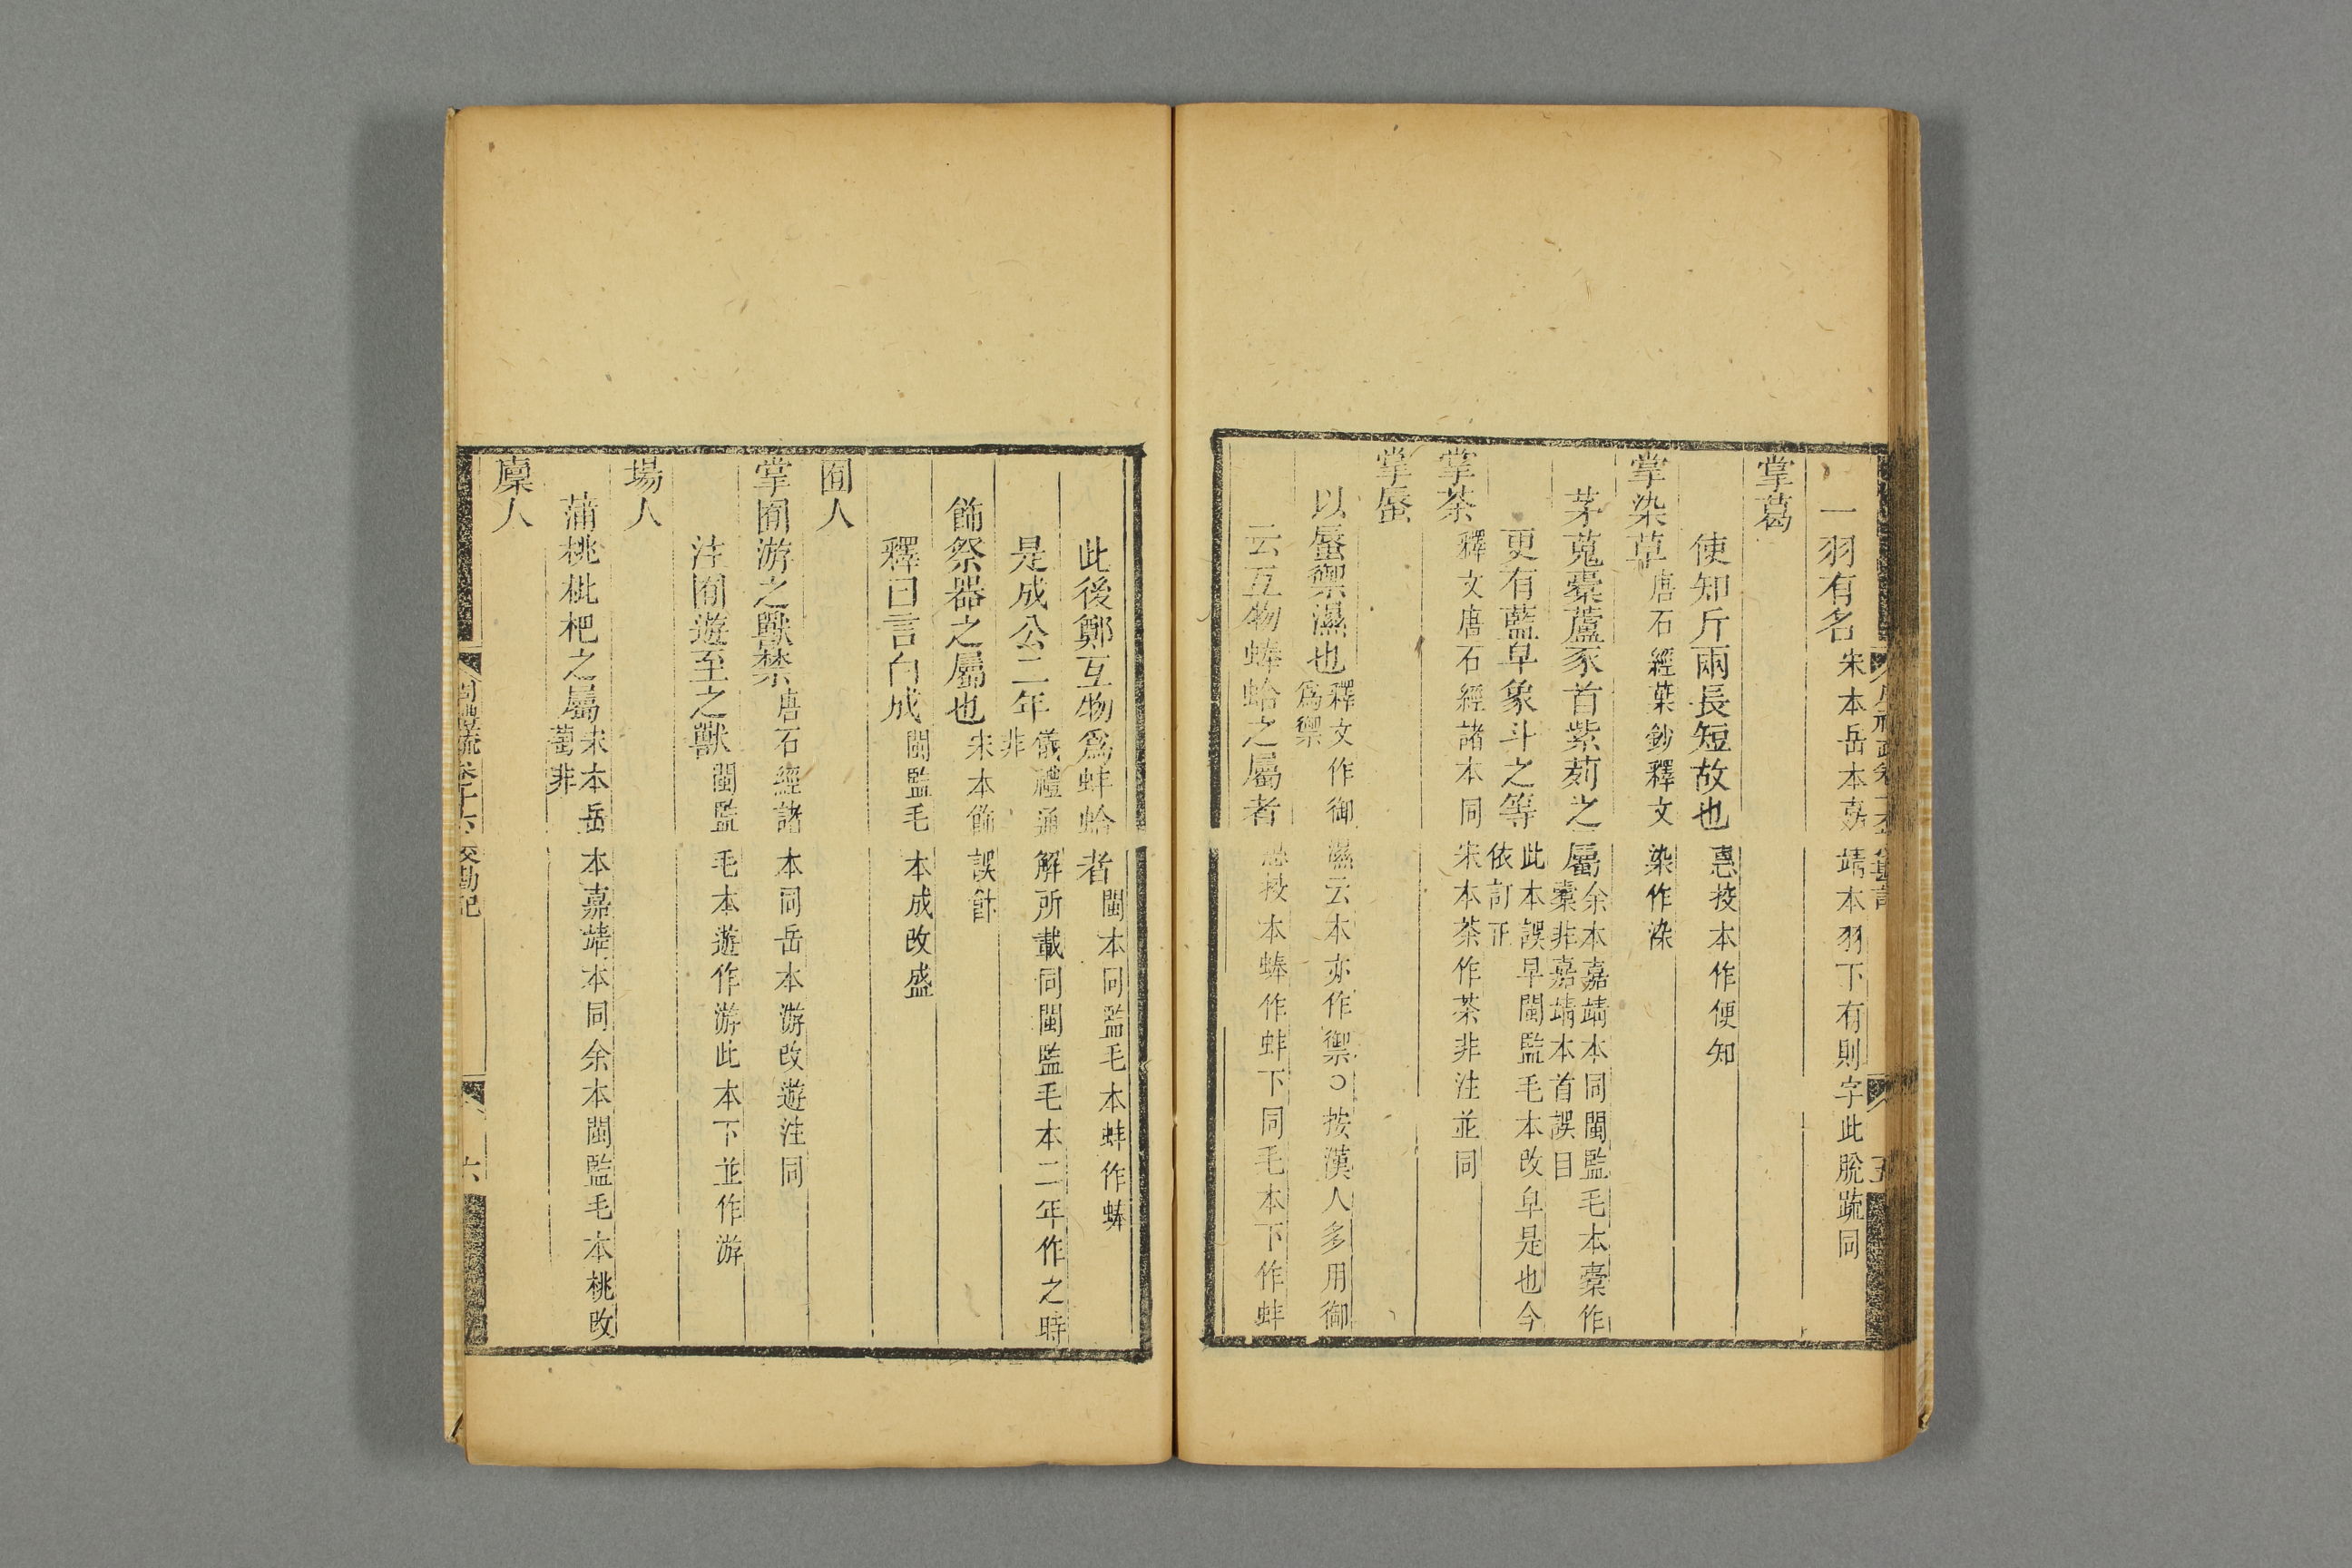 一羽有名宋本岳本嘉靖本羽下有則字此脫疏同
掌葛
使知斤兩長短故也惠挍本作便知
掌染草唐石經葉鈔釋文染作㳒
茅蒐橐蘆豕首紫茢之屬余本嘉靖本同閩監毛本橐作
槖非嘉靖本首誤目
更有藍皁象斗之等此本誤早閩監毛本改皁是也今
依訂正
掌荼釋文唐石經諸本同宋本荼作茶非注並同
掌蜃
以蜃禦濕也釋文作御濕云本亦作禦○按漢人多用御
爲禦
云互物蜯蛤之屬者惠挍本蜯作蚌下同毛本下作蚌
此後鄭互物爲蚌蛤者閩本同監毛本蚌作蜯
是成公二年儀禮通解所載同閩監毛本二年作之時
非
飾祭器之屬也宋本飾誤飰
釋曰言白成閩監毛本成改盛
囿人
掌囿游之獸禁唐石經諸本同岳本游改遊注同
注囿遊至之獸閩監毛本遊作游此本下並作游
場人
蒲桃枇杷之屬宋本岳本嘉靖本同余本閩監毛本桃改
萄非
廩人
周禮疏卷十六校勘記
六